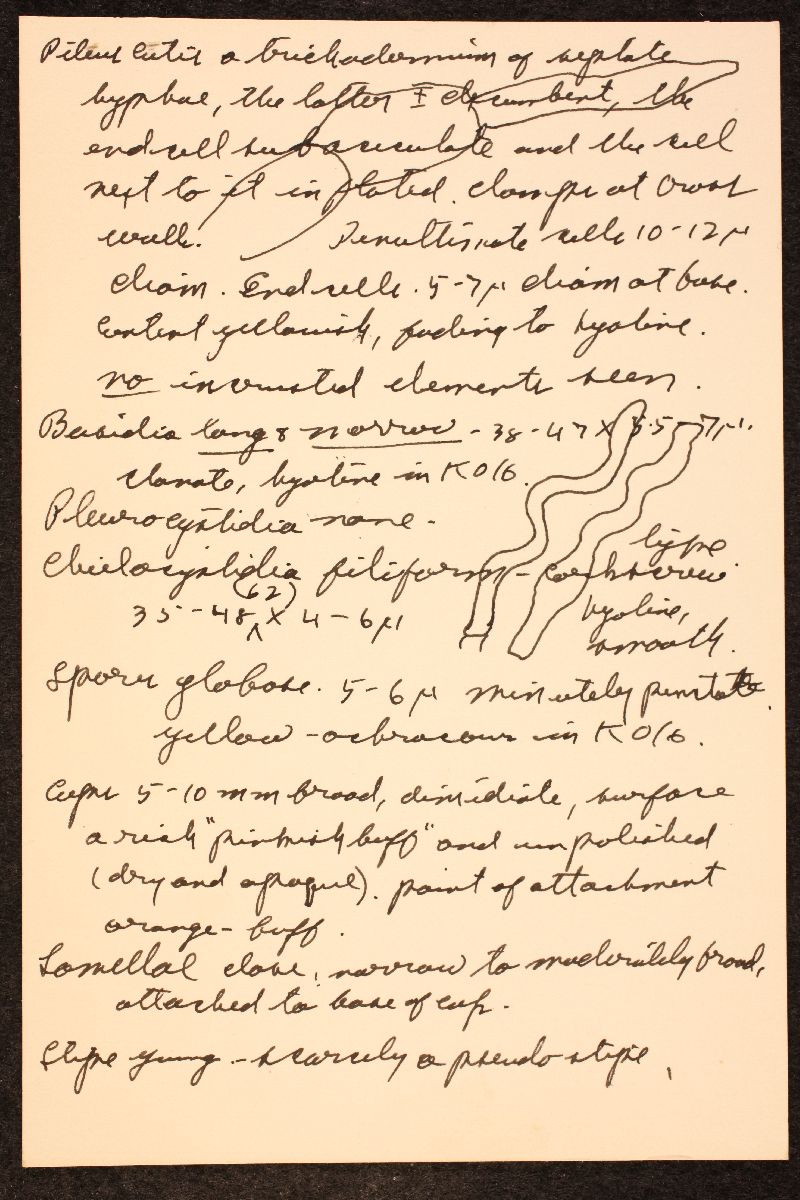 Pileus cutis a trichodermium of septate
hyphae, the latter ± decumbent, the
end cell subaciculate and the cell
next to it inflated. clamps at cross
walls. Penultimate cells 10-12 µ
diam. End cells. 5-7µ diam at base.
Content yellowish, fading to hyaline.
no incrusted elements seen.
Basidia long & narrow - 38-47 X 5.5-7µ.
clavate, hyaline in KOH.
Pleurocystidia none.
Cheilocystidia filiform - corkscrew type
35-48 (62) X 4-6µ hyaline,
smooth.
Spores globose. 5-6µ minutely punctate
yellow-ochraceous in KOH.
Caps 5-10 mm broad, dimidiate, surface
a rich "pinkish buff" and unpolished
(dry and opaque). point of attachment
orange-buff.
Lamellae close, narrow to moderately broad,
attached to base of cap.
Stipe young - scarcely a pseudostipe.